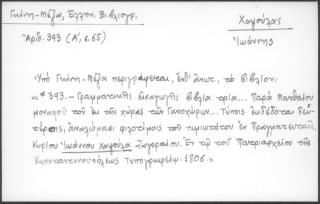 Γκίνη - Μέξα, Ἑλλην. Βιβλιογρ.
Χαψούλας
Ἀριθ. 393 (Α', σ. 65)
Ἰωάννης
Ὑπὸ Γκίνη - Μέξα περιγράφεται, τὸ Βιβλίον:
«* 393. — Γραμματικῆς εἰσαγωγῆς βιβλία τρία... Παρὰ Ματθαίου
μοναχοῦ τοῦ ἐκ τῆς χώρας τῶν Γανοχώρων... Τύποις ἐκδέδοται δεύ-
τερον, ἀναλώμασι φιλοτίμοις τοῦ τιμιωτάτου ἐν Πραγματευταῖς
Κυρίου Ἰωάννου Χαψούλα Ζαγοραίου. Ἐν τῷ τοῦ Πατριαρχείου τῆς
Κωνσταντινουπόλεως Τυπογραφείῳ. 1806.»